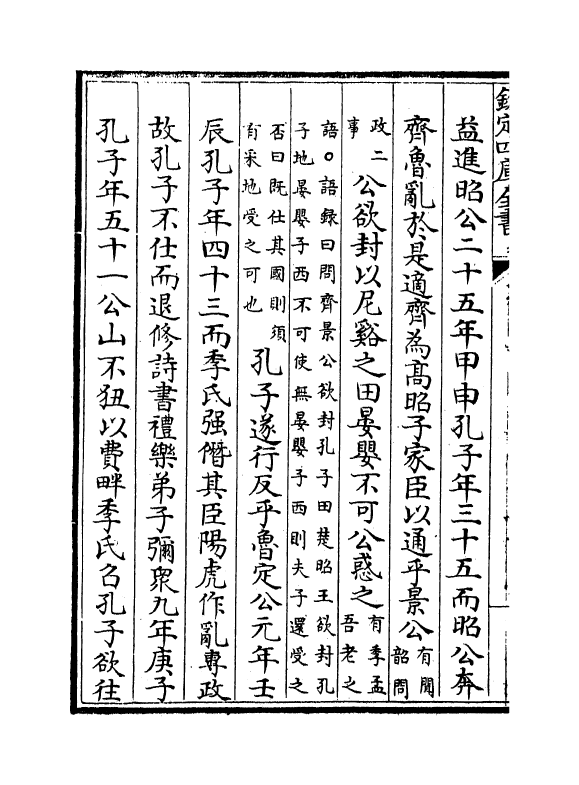 欽定四庫全書
益進昭公二十五年甲申孔子年三十五而昭公奔
齊魯亂於是適齊為髙昭子家臣以通乎景公有聞韶問
政二事公欲封以尼谿之田晏嬰不可公惑之有季孟吾老之
語○語録曰問齊景公欲封孔子田楚昭王欲封孔
子地晏嬰子西不可使無晏嬰子西則夫子還受之
否曰既仕其國則須有采地受之可也孔子遂行反乎魯定公元年壬
辰孔子年四十三而季氏强僭其臣陽虎作亂專政
故孔子不仕而退修詩書禮樂弟子彌衆九年庚子
孔子年五十一公山不狃以費畔季氏召孔子欲往